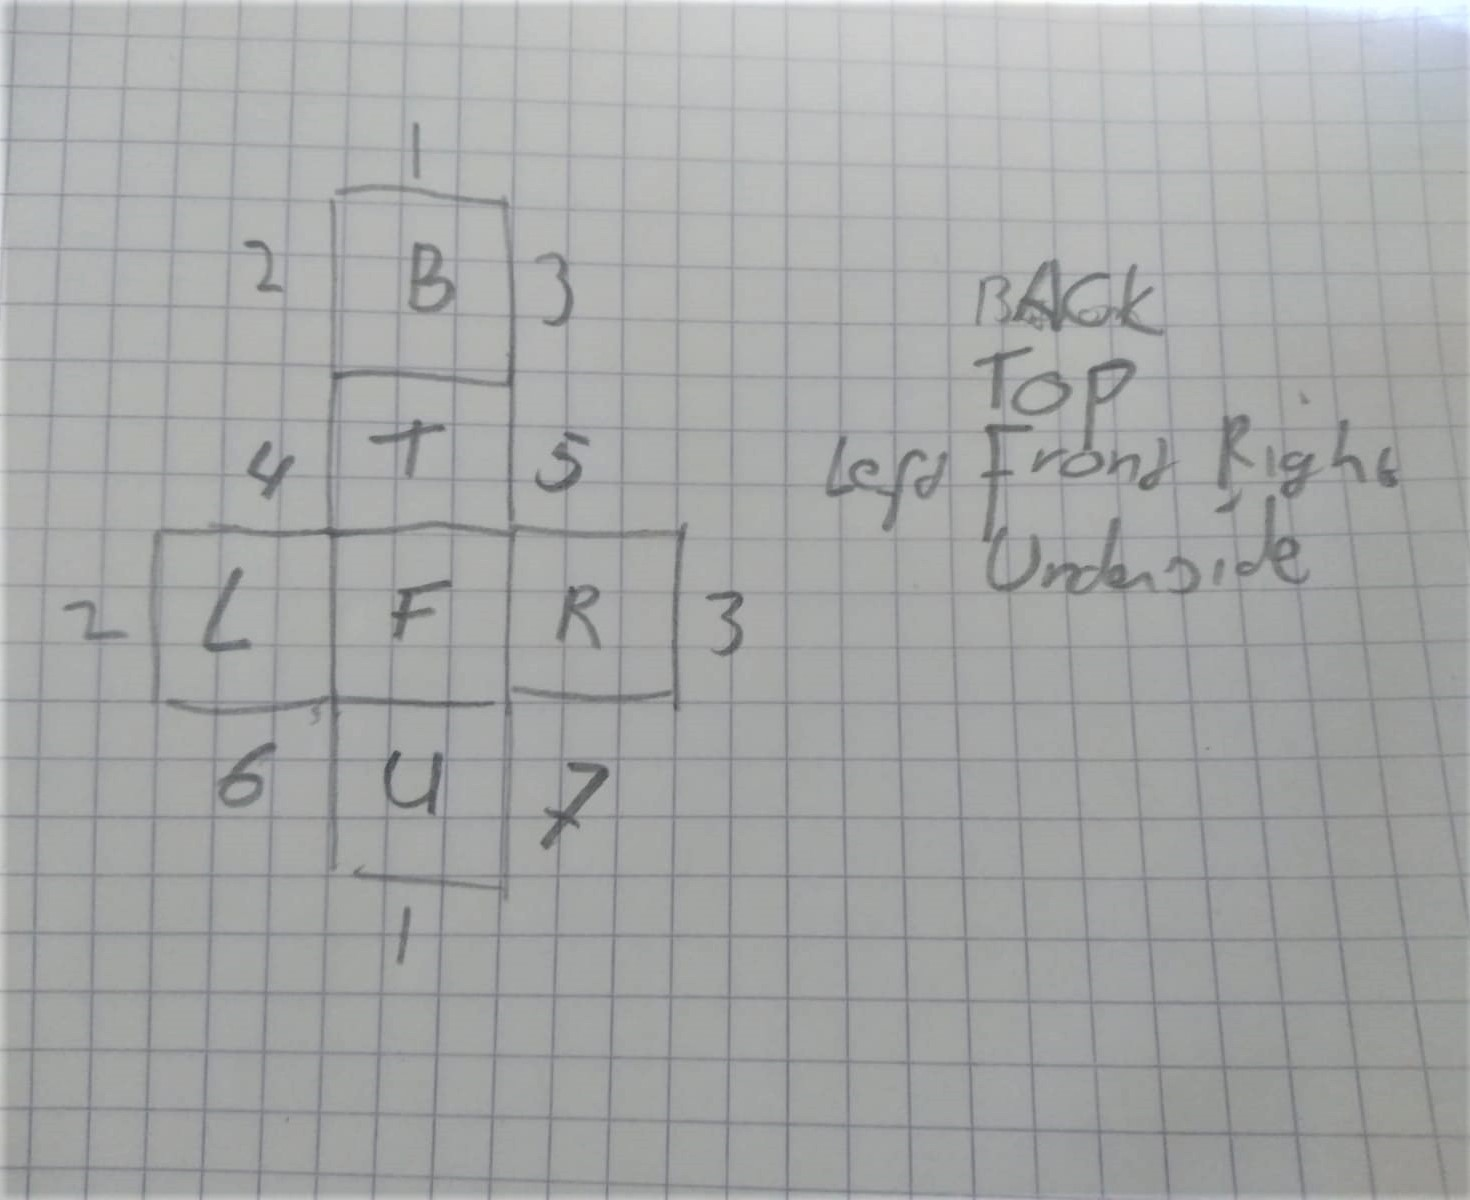 1
2 B 3
4 T 5
2 L F R 3
6 U 7
1
BACK
TOP
Left Front Right
Underside